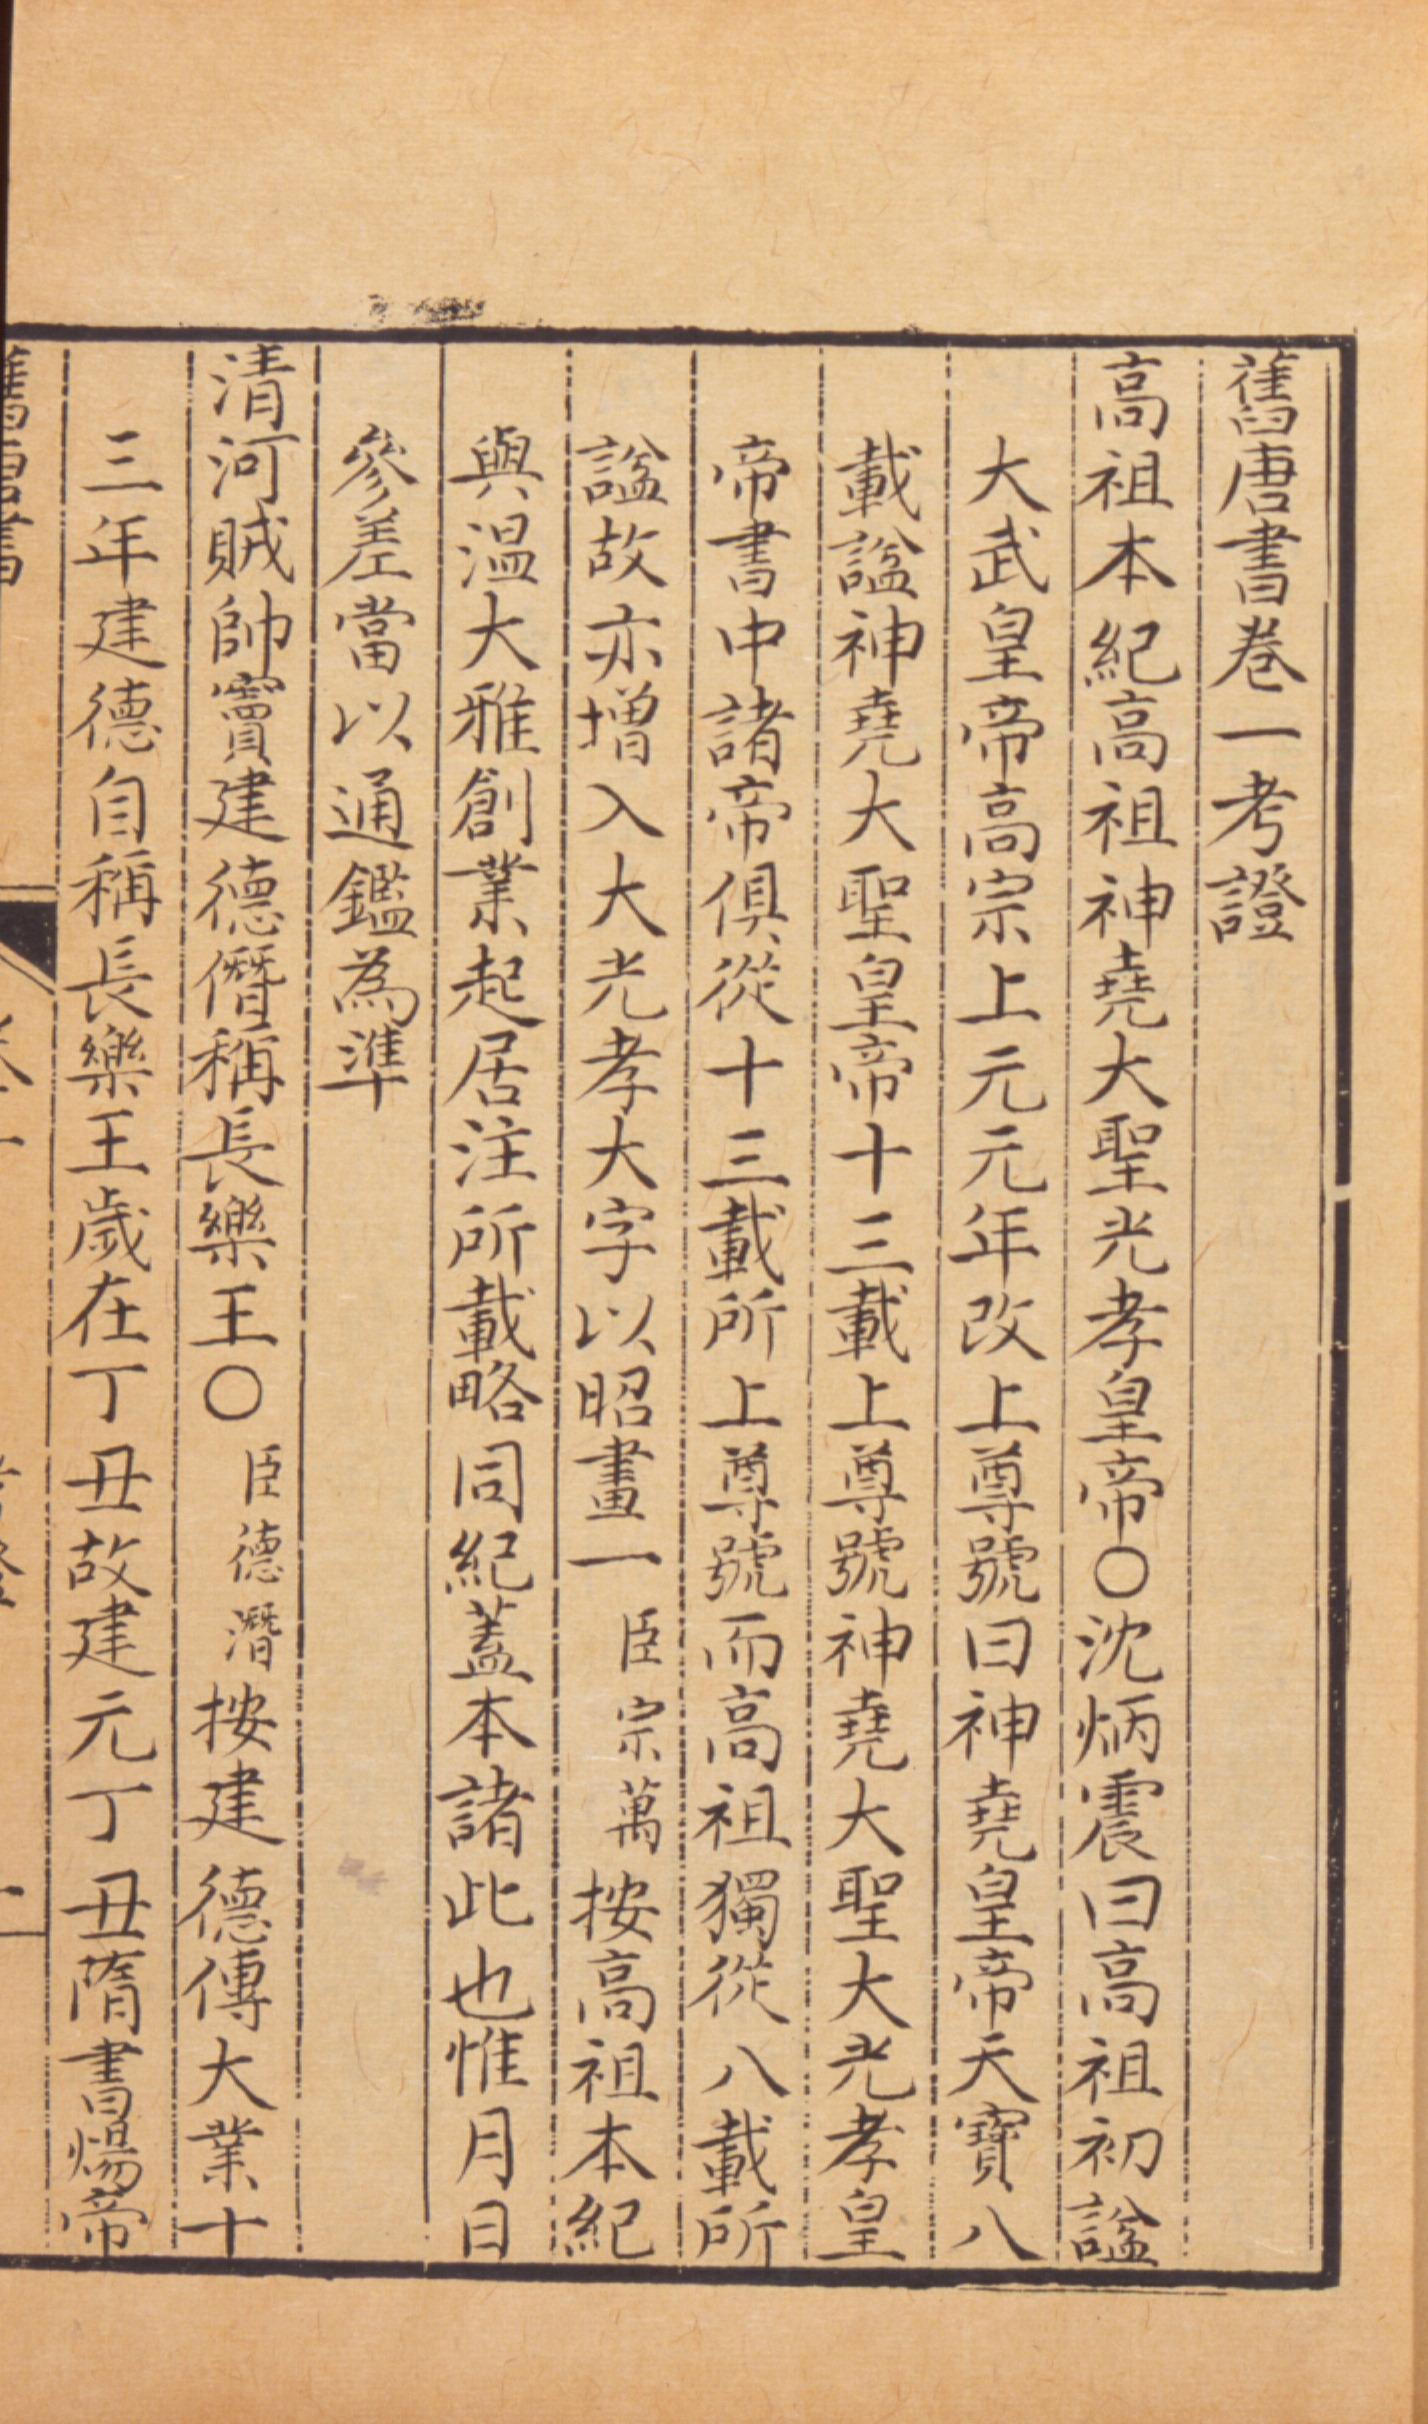 舊唐書卷一考證
高祖本紀高祖神堯大聖光孝皇帝○沈炳震曰高祖初諡
大武皇帝高宗上元元年改上尊號曰神堯皇帝天寶八
載諡神堯大聖皇帝十三載上尊號神堯大聖大光孝皇
帝書中諸帝俱從十三載所上尊號而高祖獨從八載所
諡故亦增入大光孝大字以昭畫一臣宗萬按高祖本紀
與温大雅創業起居注所載略同紀蓋本諸此也惟月日
參差當以通鑑為準
清河賊帥竇建德僭稱長樂王○臣德潛按建德傳大業十
三年建德自稱長樂王歲在丁丑故建元丁丑隋書煬帝